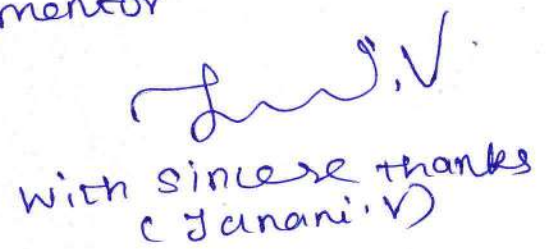 mentor
With sincere thanks
(Janani.V)